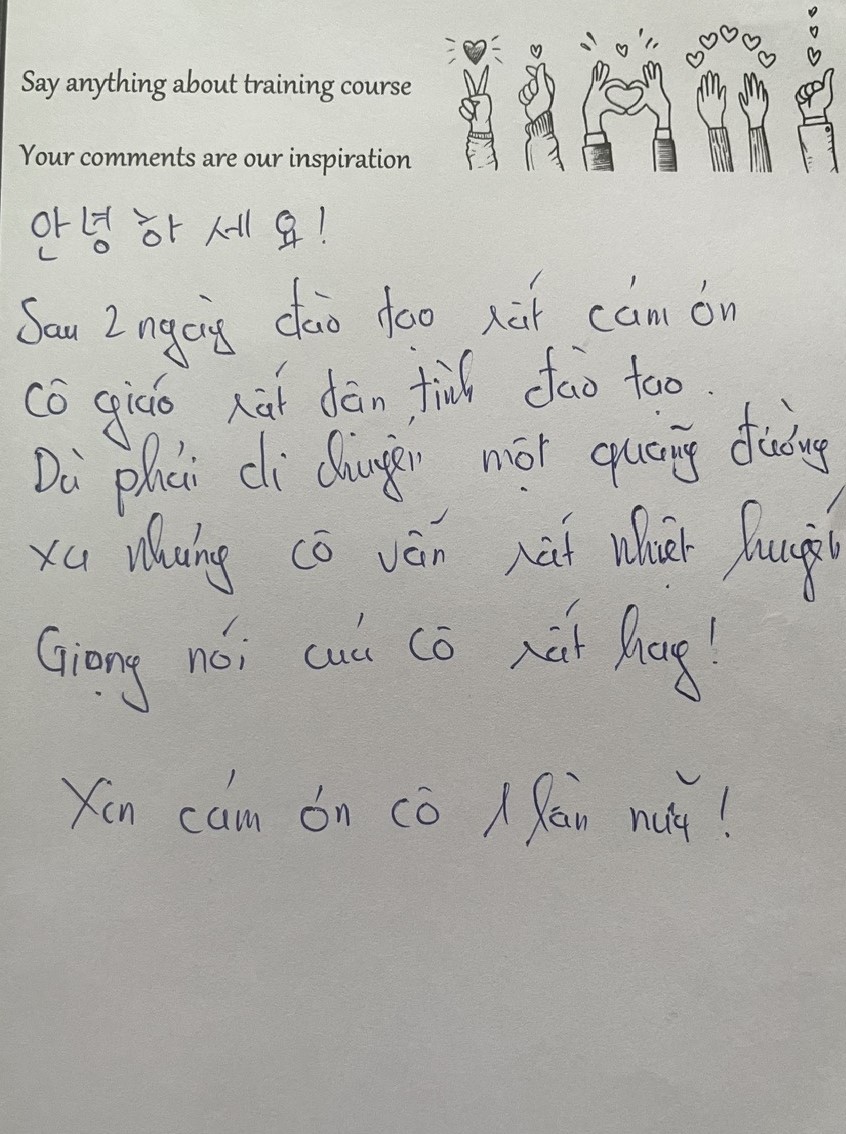 Say anything about training course
Your comments are our inspiration
안녕하세요!
Sau 2 ngày đào tạo rất cám ơn
cô giáo rất tận tình đào tạo.
Dù phải di chuyển một quãng đường
xa nhưng cô vẫn rất nhiệt huyết
Giọng nói của cô rất hay!
Xin cám ơn cô 1 lần nữa!